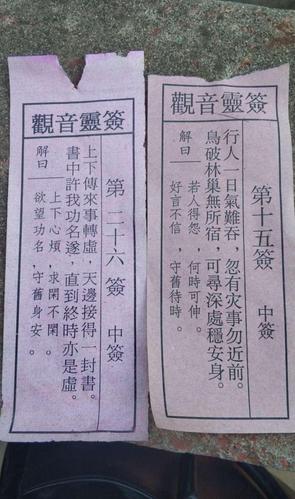 觀音靈簽
第二十六簽 中簽
上下傳來事轉虛，天邊接得一封書。
書中許我功名遂，直到終時亦是虛。
解曰
上下心煩，求閑不閑。
欲望功名，守舊身安。
觀音靈簽
第十五簽 中簽
行人一日氣難吞，忽有灾事勿近前。
鳥破林巢無所宿，可尋深處穩安身。
解曰
若人得怨，何時可伸。
好言不信，守舊待時。